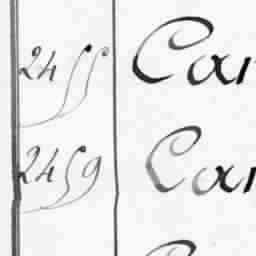 2455 Car
2459 Car